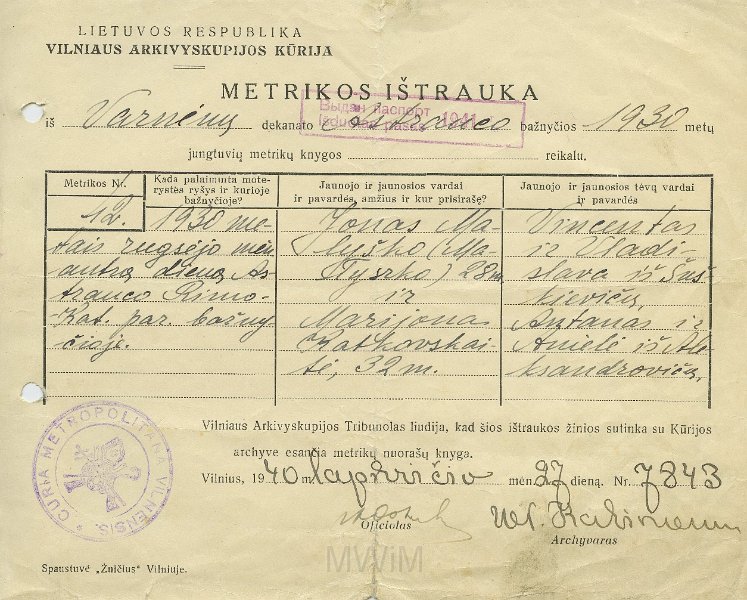 LIETUVOS RESPUBLIKA
VILNIAUS ARKIVYSKUPIJOS KŪRIJA
METRIKOS IŠTRAUKA
Выдан паспорт
Išduotas pasas 1941
iš Varnėnų dekanato Astravo bažnyčios 1930 metų
jungtuvių metrikų knygos reikalu.
Metrikos Nr.
12.
Kada palaiminta moterystės ryšys ir kurioje bažnyčioje?
1930 me-
tais rugsėjo mėn
antrą dieną As-
travco Rimo-
Kat. par. bažny-
čioje.
Jaunojo ir jaunosios vardai
ir pavardės, amžius ir kur prisirašę?
Jonas Ma-
lyško (Ma-
łyszko) 28 m.
ir
Marijona
Katkovskai-
tė, 32 m.
Jaunojo ir jaunosios tėvų vardai
ir pavardės
Vincentas
ir Vladi-
slava iš Šus-
kievičių,
Antanas ir
Anielė iš Ale-
ksandrovičių,
Vilniaus Arkivyskupijos Tribunolas liudija, kad šios ištraukos žinios sutinka su Kūrijos
archyve esančia metrikų nuorašų knyga.
Vilnius, 1940 m. lapkričio mėn. 27 dieną. Nr. 7843
Oficiolas
Archyvaras
CURIA METROPOLITANA VILNENSIS.
Spaustuvė „Žničius" Vilniuje.
MWiM